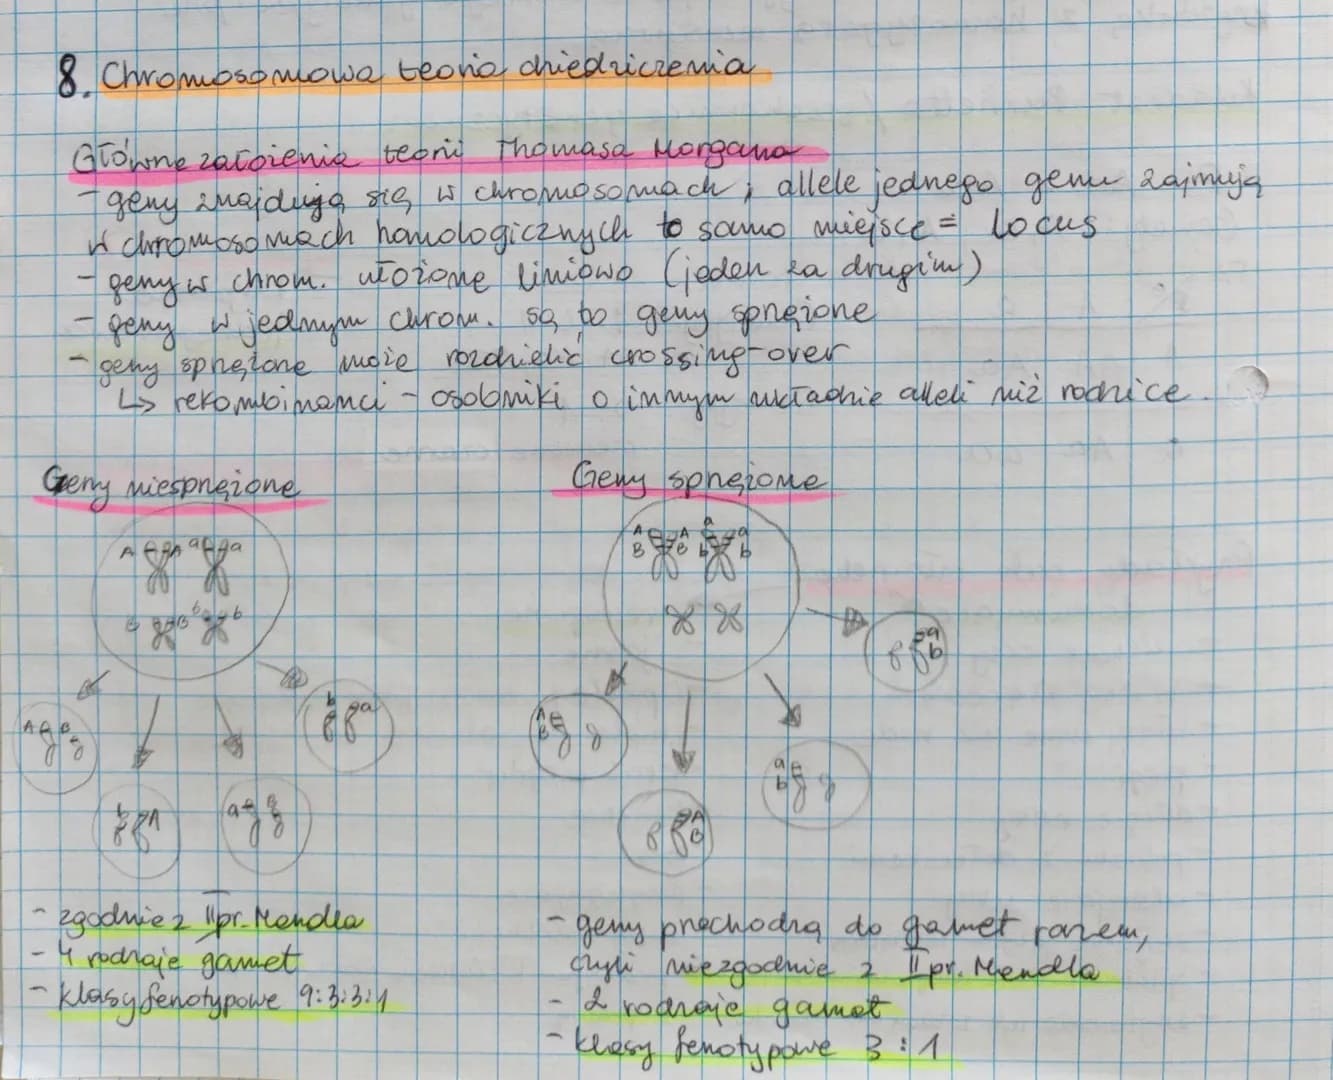 8. Chromosomowa teoria dziedziczenia
Główne założenia teorii Thomasa Morgana
- geny znajdują się w chromosomach; allele jednego genu zajmują
w chromosomach homologicznych to samo miejsce = locus
- geny w chrom. ułożone liniowo (jeden za drugim)
- geny w jednym chrom. są to geny sprzężone
- geny sprzężone może rozdzielić crossing-over
↳ rekombinanci - osobniki o innym układzie alleli niż rodzice.
Geny niesprzężone
Geny sprzężone
A A a a
B B b b
A B
b A
a B
b a
A A a a
B B b b
A
B
A
B
a
b
a
b
- zgodnie z II pr. Mendla
- 4 rodzaje gamet
- klasy fenotypowe 9:3:3:1
- geny przechodzą do gamet razem,
czyli niezgodnie z II pr. Mendla
- 2 rodzaje gamet
- klasy fenotypowe 3:1